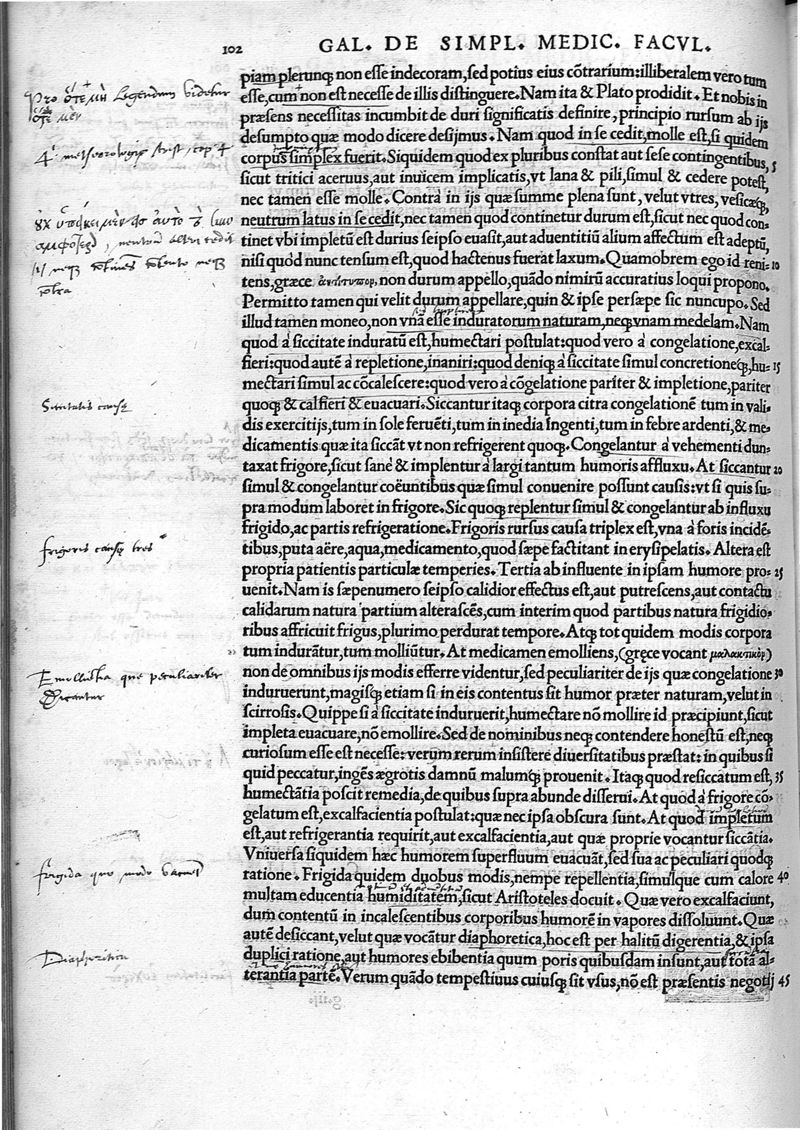 102 GAL. DE SIMPL. MEDIC. FACVL.
piam plerunq; non esse indecoram, sed potius eius cõtrarium: illiberalem vero tum
esse, cum non est necesse de illis distinguere. Nam ita & Plato prodidit. Et nobis in
præsens necessitas incumbit de duri significatis definire, principio rursum ab ijs
desumpto quæ modo dicere desijmus. Nam quod in se cedit, molle est, si quidem
corpus simplex fuerit. Siquidem quod ex pluribus constat aut sese contingentibus, 5
sicut tritici aceruus, aut inuicem implicatis, vt lana & pili, simul & cedere potest,
nec tamen esse molle. Contrà in ijs quæ summe plena sunt, velut vtres, vesicæq;,
neutrum latus in se cedit, nec tamen quod continetur durum est, sicut nec quod con-
tinet vbi impletũ est durius seipso euasit, aut aduentitiũ alium affectum est adeptũ,
nisi quod nunc tensum est, quod hactenus fuerat laxum. Quamobrem ego id reni- 10
tens, græce ἀντίτυπον, non durum appello, quãdo nimirũ accuratius loqui propono.
Permitto tamen qui velit durum appellare, quin & ipse persæpe sic nuncupo. Sed
illud tamen moneo, non vnã esse induratorum naturam, neq; vnam medelam. Nam
quod à siccitate induratũ est, humectari postulat: quod vero à congelatione, excal-
fieri: quod autẽ à repletione, inaniri: quod deniq; à siccitate simul concretioneq;, hu- 15
mectari simul ac cõcalescere: quod vero à cõgelatione pariter & impletione, pariter
quoq; & calfieri & euacuari. Siccantur itaq; corpora citra congelationẽ tum in vali-
dis exercitijs, tum in sole feruẽti, tum in inedia ingenti, tum in febre ardenti, & me-
dicamentis quæ ita siccãt vt non refrigerent quoq;. Congelantur à vehementi dun-
taxat frigore, sicut sanè & implentur à largi tantum humoris affluxu. At siccantur 20
simul & congelantur coëuntibus quæ simul conuenire possunt causis: vt si quis su-
pra modum laboret in frigore. Sic quoq; replentur simul & congelantur ab influxu
frigido, ac partis refrigeratione. Frigoris rursus causa triplex est, vna à foris incidẽ-
tibus, puta aëre, aqua, medicamento, quod sæpe factitant in erysipelatis. Altera est
propria patientis particulæ temperies. Tertia ab influente in ipsam humore pro- 25
uenit. Nam is sæpenumero seipso calidior effectus est, aut putrescens, aut contactu
calidarum natura partium alterascẽs, cum interim quod partibus natura frigidio-
ribus affricuit frigus, plurimo perdurat tempore. Atq; tot quidem modis corpora
tum indurãtur, tum molliũtur. At medicamen emolliens, (græce vocant μαλακτικὸν)
non de omnibus ijs modis efferre videntur, sed peculiariter de ijs quæ congelatione 30
induruerunt, magisq; etiam si in eis contentus sit humor præter naturam, velut in
scirrosis. Quippe si à siccitate induruerit, humectare nõ mollire id præcipiunt, sicut
impleta euacuare, nõ emollire. Sed de nominibus neq; contendere honestũ est, neq;
curiosum esse est necesse: verum rerum insistere diuersitatibus præstat: in quibus si
quid peccatur, ingẽs ægrotis damnũ malumq; prouenit. Itaq; quod resiccatum est, 35
humectãtia poscit remedia, de quibus supra abunde disserui. At quod à frigore cõ-
gelatum est, excalfacientia postulat: quæ nec ipsa obscura sunt. At quod impletum
est, aut refrigerantia requirit, aut excalfacientia, aut quæ proprie vocantur siccãtia.
Vniuersa siquidem hæc humorem superfluum euacuãt, sed sua ac peculiari quodq;
ratione. Frigida quidem duobus modis, nempe repellentia, simulque cum calore 40
multam educentia humiditatem, sicut Aristoteles docuit. Quæ vero excalfaciunt,
dum contentũ in incalescentibus corporibus humorẽ in vapores dissoluunt. Quæ
autẽ desiccant, velut quæ vocãtur diaphoretica, hoc est per halitũ digerentia, & ipsa
duplici ratione, aut humores ebibentia quum poris quibusdam insunt, aut tota al-
terantia partẽ. Verum quãdo tempestiuus cuiusq; sit vsus, nõ est præsentis negotij 45
Siccitatis causæ
frigoris causæ tres
Emollientia que peculiariter
Dicantur
frigida quo modo